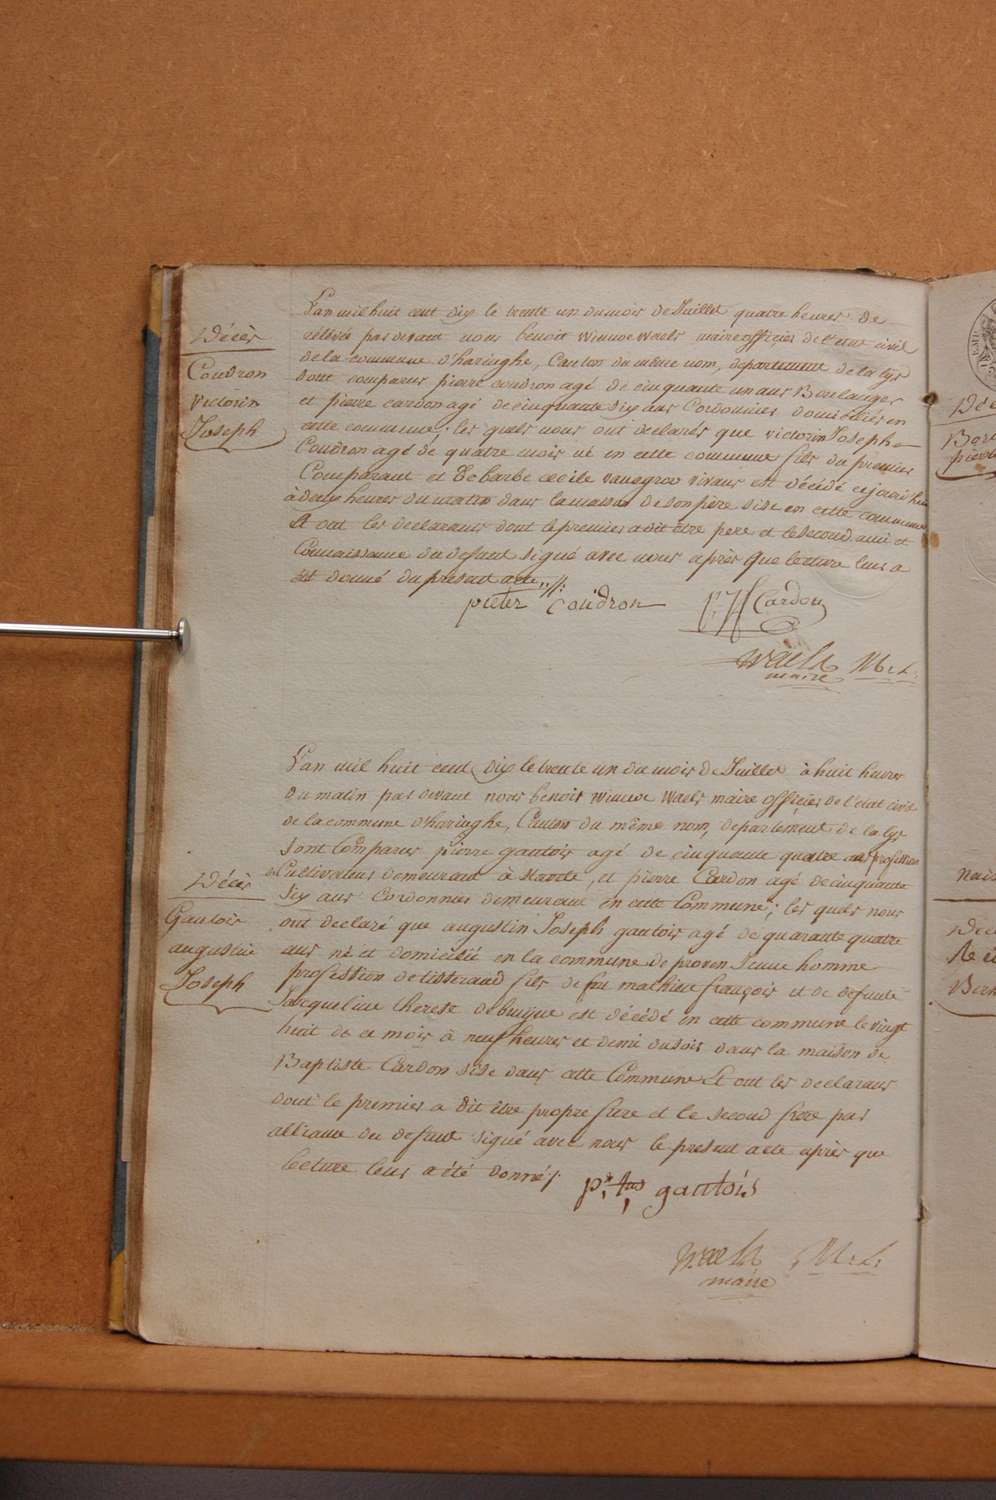 Décès
Coudron
victorin
Joseph
L'an mil huit cent dix le trente un du mois de Juillet quatre heures de
relevée pardevant nous benoit winnoc Waels maire officier de l'etat civil
de la commune d'haringhe, Canton du même nom, departement de la lys
sont comparus pierre coudron agé de cinquante un ans Boulanger
et pierre cardon agé de cinquante dix ans Cordonnier domiciliés en
cette commune; les quels nous ont declarés que victorin Joseph
Coudron agé de quatre mois né en cette commune fils du premier
Comparant et de barbe cecile vivans est décédé cejourd'hui
à deux heures du matin dans la maison de son père sise en cette commune
Et ont les declarans dont le premier a dit être pere et le second ami et
Connaissance du defunt signé avec nous après que lecture leur a
été donné du présent acte.
pieter Coudron
Cardon
Waels
maire
L'an mil huit cent dix le trente un du mois de Juillet à huit heures
Du matin pardevant nous benoit winnoc Waels maire officier de l'etat civil
de la commune d'haringhe, Canton du même nom, departement de la lys
sont Comparus pierre gautois agé de cinquante quatre ans profession
Décès
Gautois
augustin
Joseph
de Cultivateur demeurant à et pierre Cardon agé de cinquante
dix ans Cordonnier demeurant en cette Commune; les quels nous
ont declaré que augustin Joseph gautois agé de quarante quatre
ans né et domicilié en la commune de proven Jeune homme
profession de tisserand fils de feu mathieu françois et de defunte
Jacqueline therese debruyne est décédé en cette commune le vingt
huit de ce mois à neuf heures et demi du soir dans la maison de
Baptiste Cardon sise dans cette Commune Et ont les declarans
dont le premier a dit être propre frere et le second frere par
alliance du defunt signé avec nous le present acte après que
lecture leur a été donnés
gautois
Waels
maire